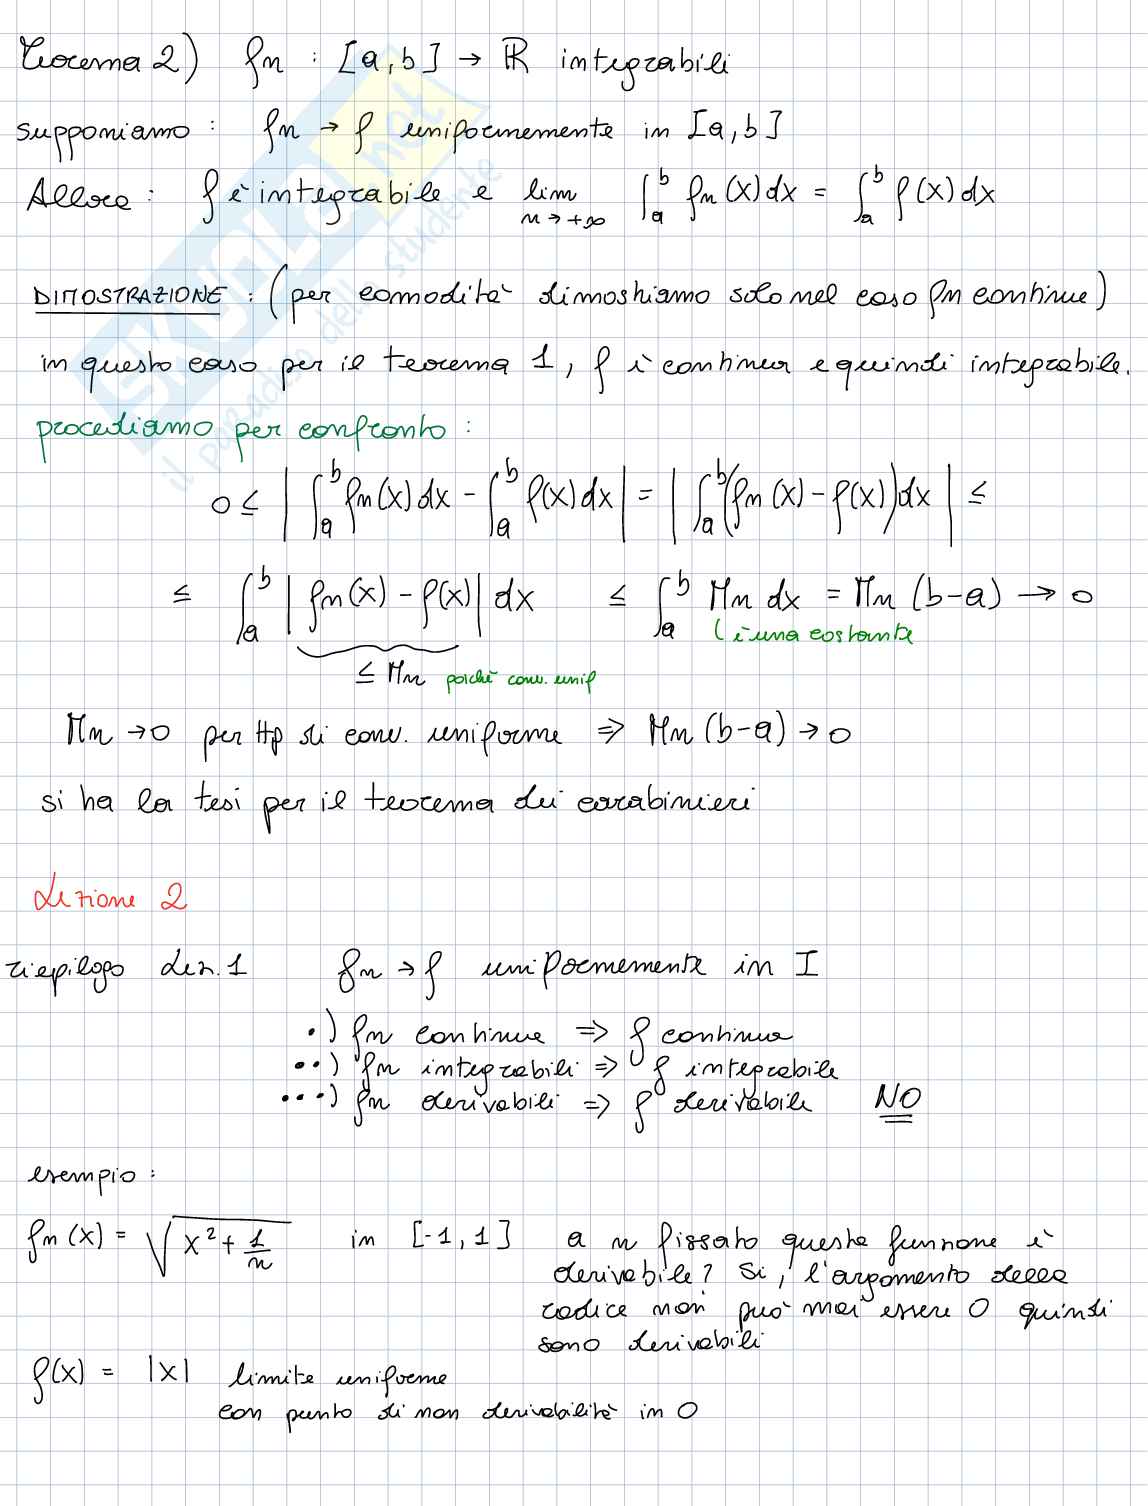 Teorema 2) fn : [a,b] → ℝ integrabili
supponiamo : fn → f uniformemente in [a,b]
Allora : f è integrabile e lim n→+∞ ∫_a^b fn(x)dx = ∫_a^b f(x)dx
DIMOSTRAZIONE : (per comodità dimostriamo solo nel caso fn continue)
in questo caso per il teorema 1, f è continua e quindi integrabile.
procediamo per confronto :
0 ≤ | ∫_a^b fn(x)dx - ∫_a^b f(x)dx | = | ∫_a^b (fn(x) - f(x))dx | ≤
≤ ∫_a^b | fn(x) - f(x) | dx ≤ ∫_a^b Mn dx = Mn (b-a) → 0
( è una costante
≤ Mn poichè conv. unif
Mn → 0 per Hp di conv. uniforme ⇒ Mn (b-a) → 0
si ha la tesi per il teorema dei carabinieri
Lezione 2
riepilogo Lez. 1 fn → f uniformemente in I
•) fn continue ⇒ f continua
••) fn integrabili ⇒ f integrabile
•••) fn derivabili ⇒ f derivabile NO
esempio :
fn(x) = √(x² + 1/n) in [-1,1] a n fissato questa funzione è
derivabile? Si, l'argomento della
radice non può mai essere 0 quindi
sono derivabili
f(x) = |x| limite uniforme
con punto di non derivabilità in 0
SKUOLA.net
il paradiso dello studente